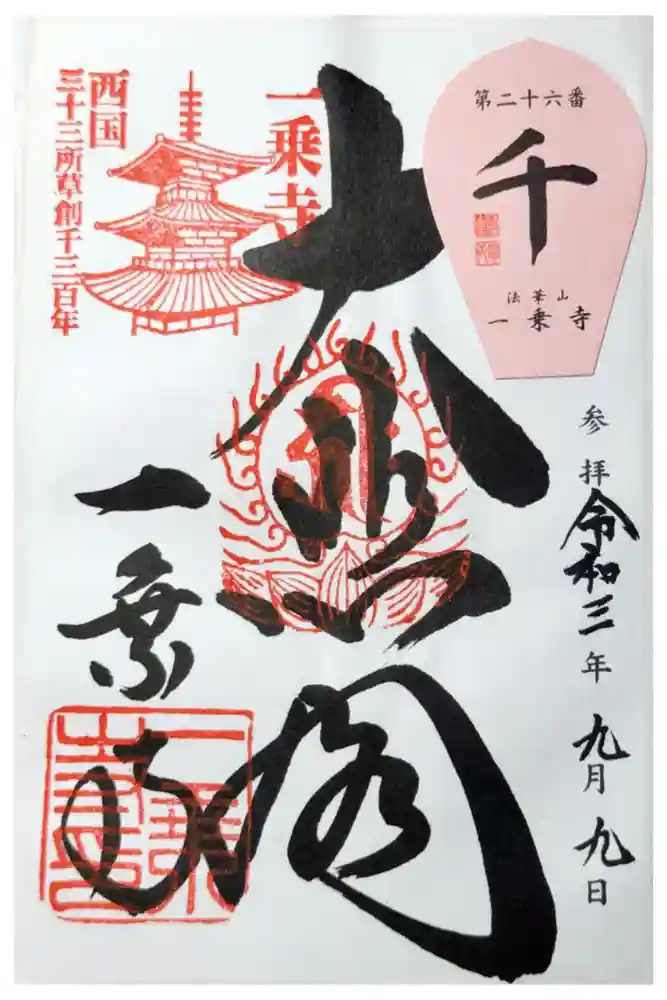 第二十六番
千
法華山
一乗寺
参拝令和三年九月九日
大悲閣
一乗寺
一乗寺
西国
三十三所草創千三百年